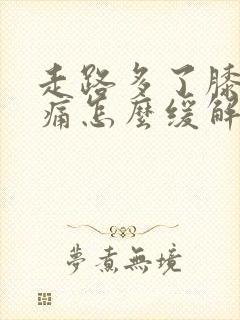 走路多了膝
痛怎麼緩解
夢煮無境